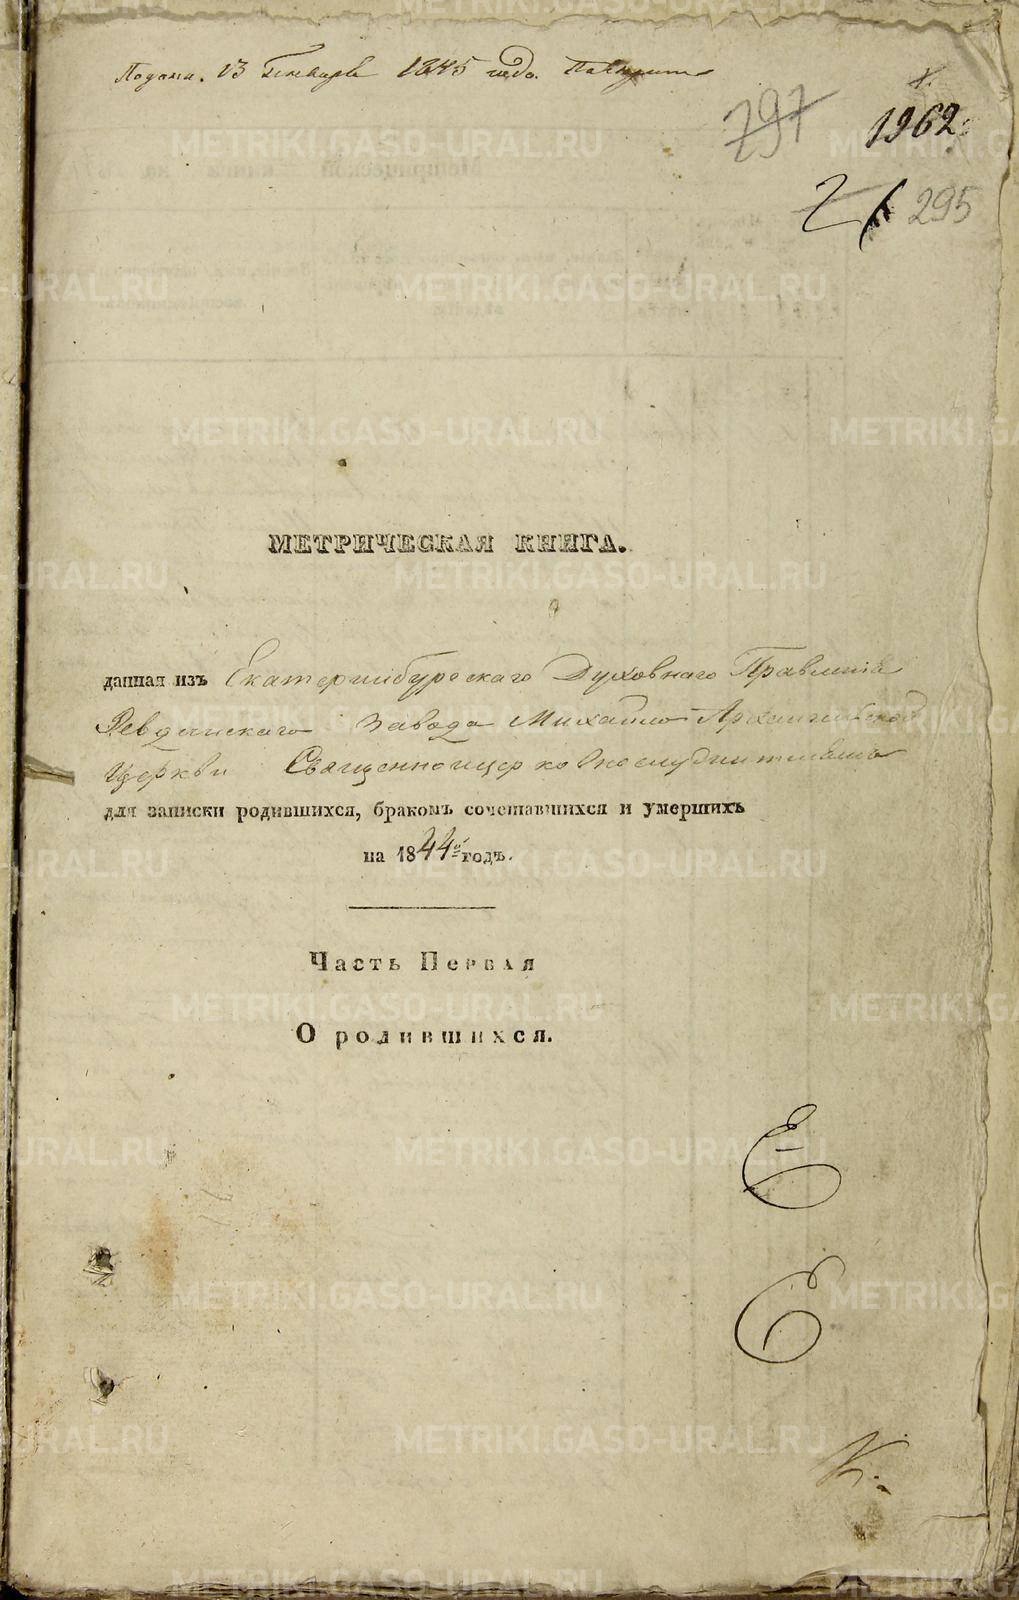 Подана. 13 Генваря 1845 года.
297
1962
2 295
МЕТРИЧЕСКАЯ КНИГА.
данная изъ Екатеринбургскаго Духовнаго Правленія
Ревдинскаго Завода Михайло Архангельской
Церкви Священноцерковнослужителямъ
для записки родившихся, бракомъ сочетавшихся и умершихъ
на 1844й годъ.
Часть Первая
О родившихся.
Е
Е
К.
METRIKI.GASO-URAL.RU